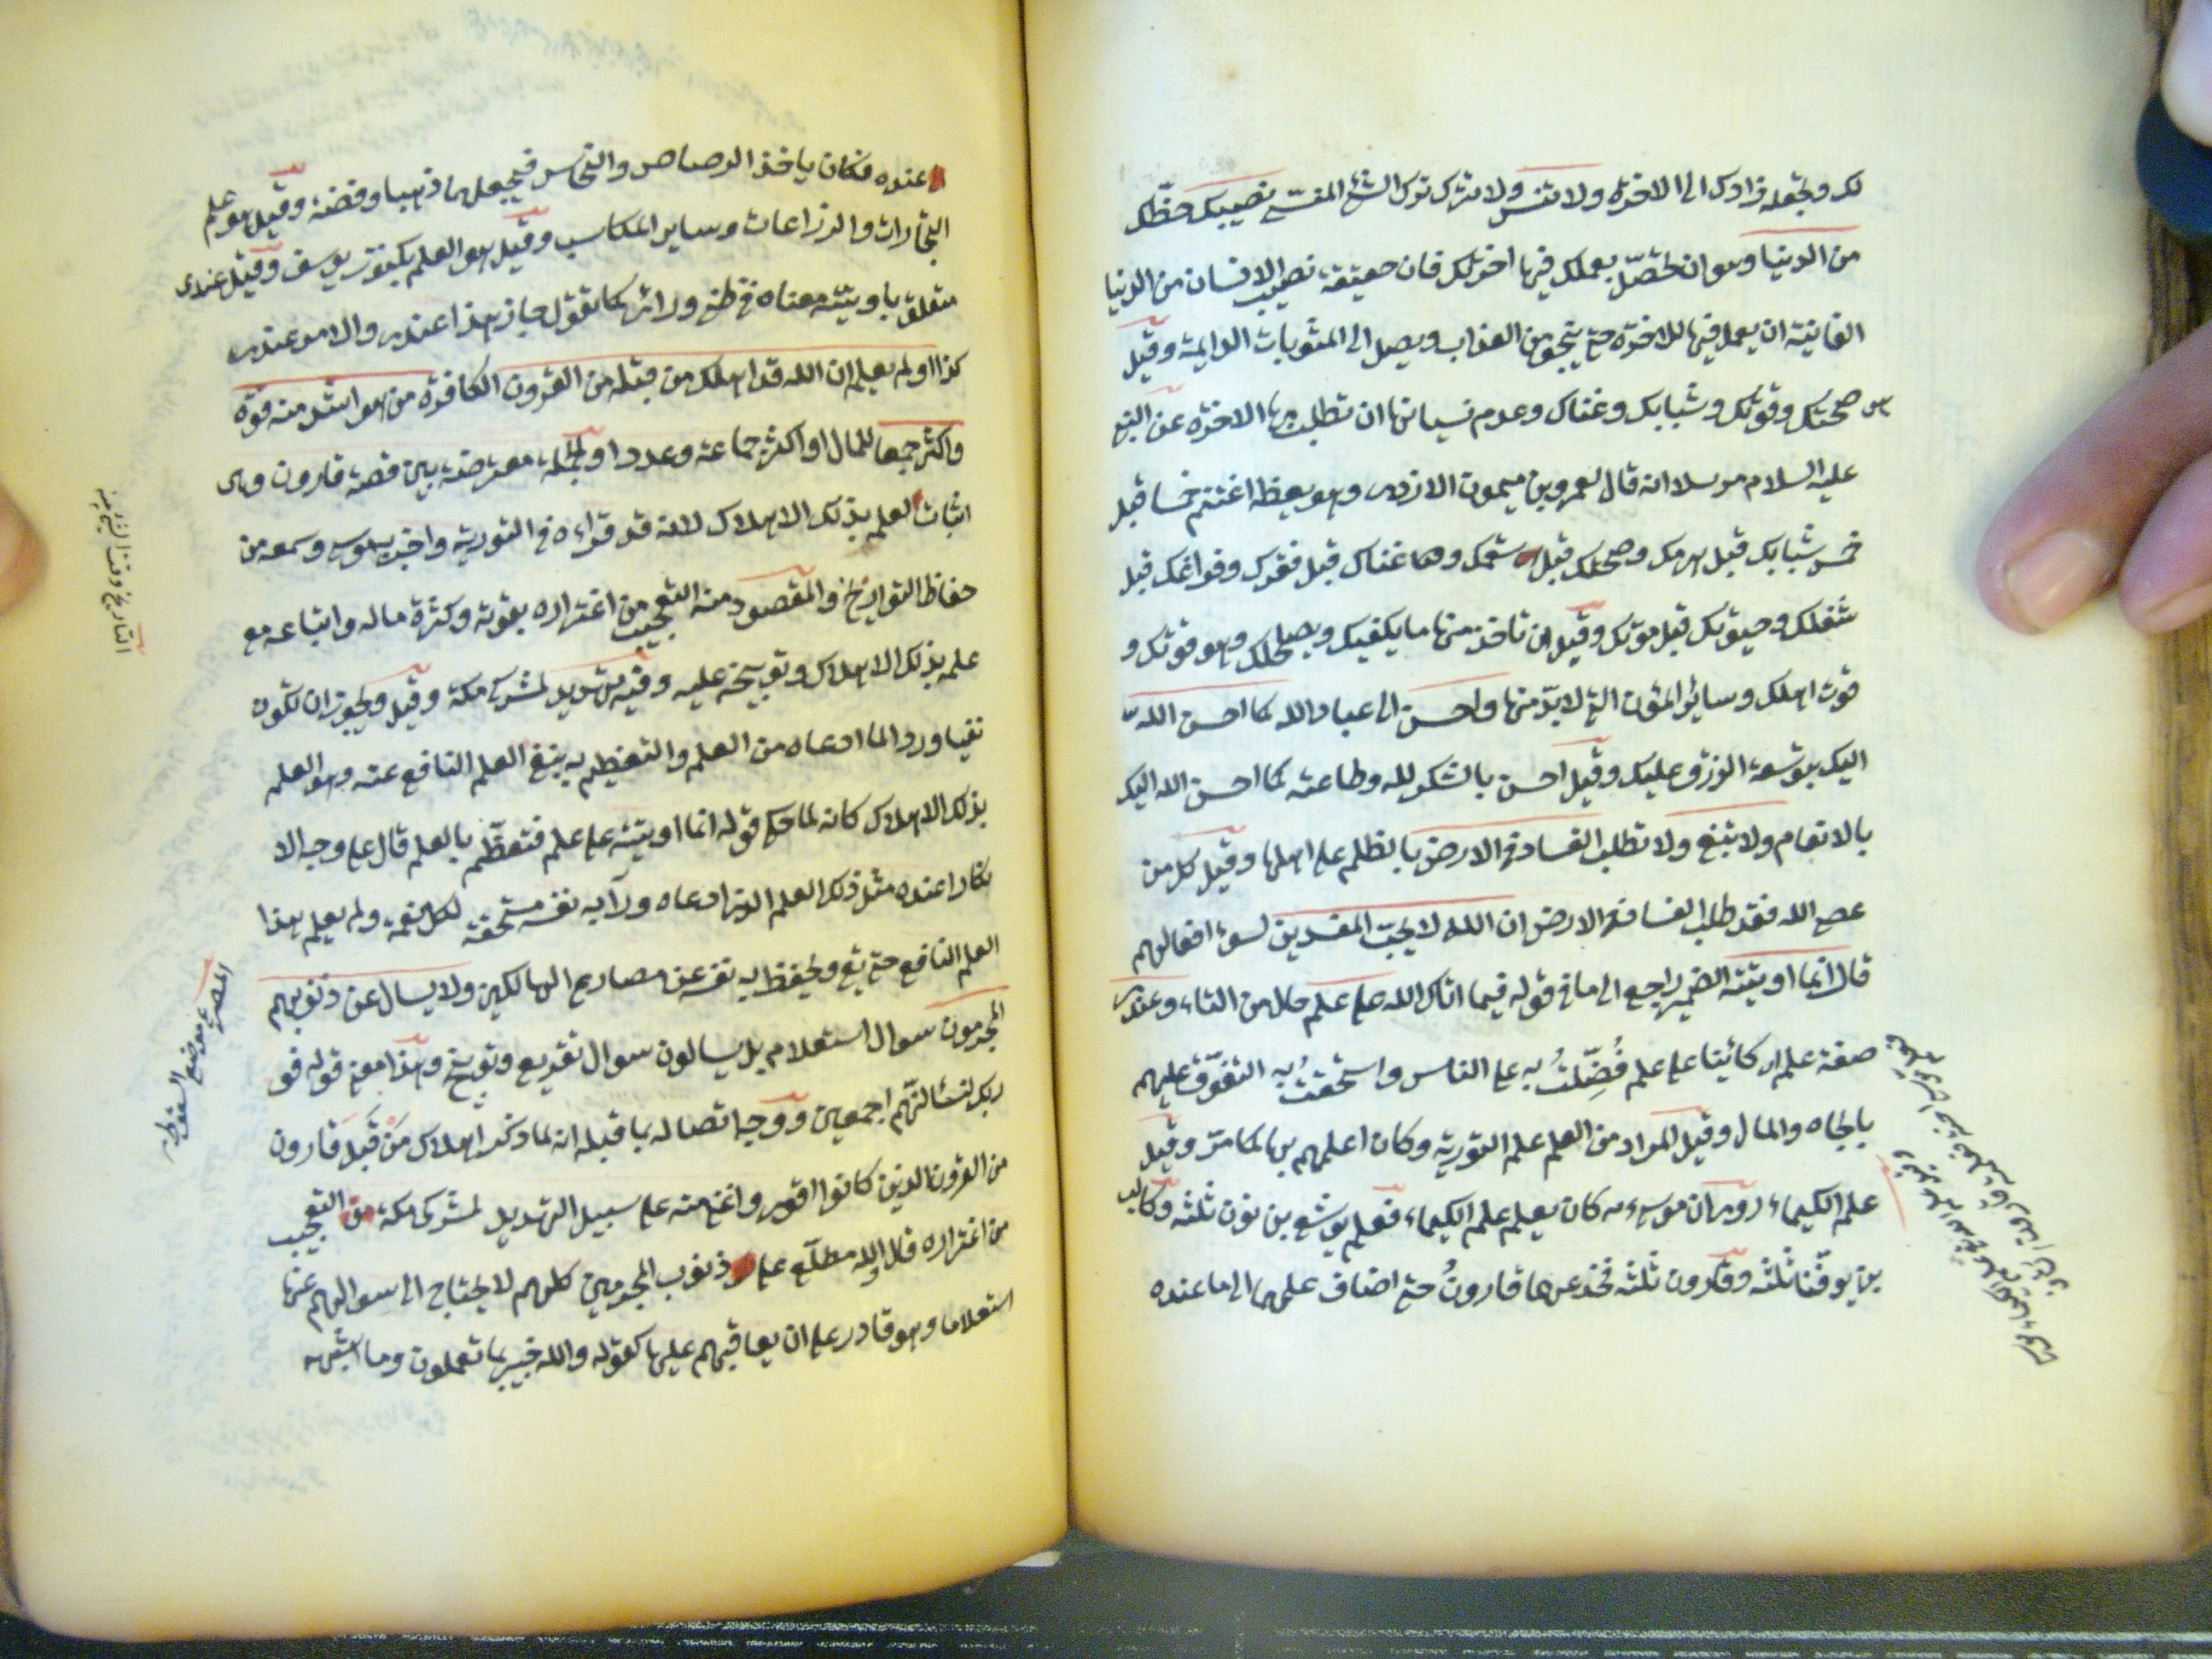 لك وتجعله زادك الى الاخرة ولا تنس ولا تترك ترك الشئ المنسى نصيبك حظك
من الدنيا وهو ان تحصّل بعملك فيها اخرتك فان حقيقة نصيب الانسان من الدنيا
الفانية ان يعمل فيها للاخرة حتى ينجو من العذاب ويصل الى المثوبات الدايمة وقيل
هى صحتك وقوتك وشبابك وغناك وعدم نسيانها ان تطلب بها الاخرة عن النبى
عليه السلام مرسلا انه قال لعمرو بن ميمون الازدى وهو يعظه اغتنم خمسا قبل
خمس شبابك قبل هرمك وصحتك قبل سقمك وغناك قبل فقرك وفراغك قبل
شغلك وحيوتك قبل موتك وقيل ان تاخذ منها ما يكفيك ويصلحك وهو قوتك و
قوت اهلك وسائر المؤن التى لا بدّ منها واحسن الى عباد الله كما احسن الله
اليك بتوسعة الرزق عليك وقيل احسن بالشكر لله وطاعته كما احسن الله اليك
بالانعام ولا تبغ ولا تطلب الفساد فى الارض بالظلم على اهلها وقيل كل من
عصى الله فقد طلب الفساد فى الارض ان الله لا يحبّ المفسدين لسوء افعالهم
قال انما اوتيته الضمير راجع الى ما فى قوله فيما اتاك الله على علم حال من التاء وعندى
صفة علم اى كائنا على علم فُضّلتُ به على الناس واستحققتُ به التفوّق عليهم
بالجاه والمال وقيل المراد من العلم علم التورية وكان اعلمهم بها كما مرّ وقيل
علم الكيمياء روى ان موسى كان يعلم علم الكيمياء فعلم يوشع بن نون ثلثه وكالب
بن يوقنا ثلثه وقارون ثلثه فخدعهما قارونُ حتى اضاف علمهما الى ما عنده
عنده فكان ياخذ الرصاص والنحاس فيجعلهما ذهبا وفضة وقيل هو علم
التجارات والزراعات وساير المكاسب وقيل هو العلم بكنوز يوسف وقيل عندى
متعلق باوتيته معناه فى ظنى ورائى كما تقول جاز هذا عندى والامر عندى
كذا اولم يعلم ان الله قد اهلك من قبله من القرون الكافرة من هو اشد منه قوة
واكثر جمعا للمال او اكثر جماعة وعددا والجملة معترضة بين قصة قارون وهى
اثبات لعلمه بذلك الاهلاك لانه قد قراه فى التورية واخبر به موسى وسمعه من
حفاظ التواريخ والمقصود منه التعجيب من اغتراره بقوته وكثرة ماله واتباعه مع
علمه بذلك الاهلاك وتوبيخه عليه وفيه تهديد لمشركى مكة وقيل ويجوز ان تكون
نفيا وردا لما ادعاه من العلم والتعظيم به بنفى العلم النافع عنه وهو العلم
بذلك الاهلاك كانه لما حكى قوله انما اوتيته على علم فتعظّم بالعلم قال على وجه الا
نكار اعنده مثل ذلك العلم الذى ادعاه ورآى به نفسه مستحقة لكل نعمة ولم يعلم هذا
العلم النافع حتى يقى ويحفظ به نفسه عن مصارع الهالكين ولا يسال عن ذنوبهم
المجرمون سوال استعلام بل يسالون سوال تقريع وتوبيخ وهذا معنى قوله فو
ربك لنسالنهم اجمعين ووجه اتصاله بما قبله انه لما ذكر اهلاك مَنْ قبل قارون
من القرون الذين كانوا اقوى واغنى منه على سبيل التهديد لمشركى مكة التعجيب
من اغتراره قال والله مطلّع على ذنوب المجرمين كلهم لا يحتاج الى سوالهم عنها
استعلاما وهو قادر على ان يعاقبهم عليها كقوله والله خبير بما تعملون وما اشبهه
المصرع موضع السقوط
التاريخ وقت الشئ